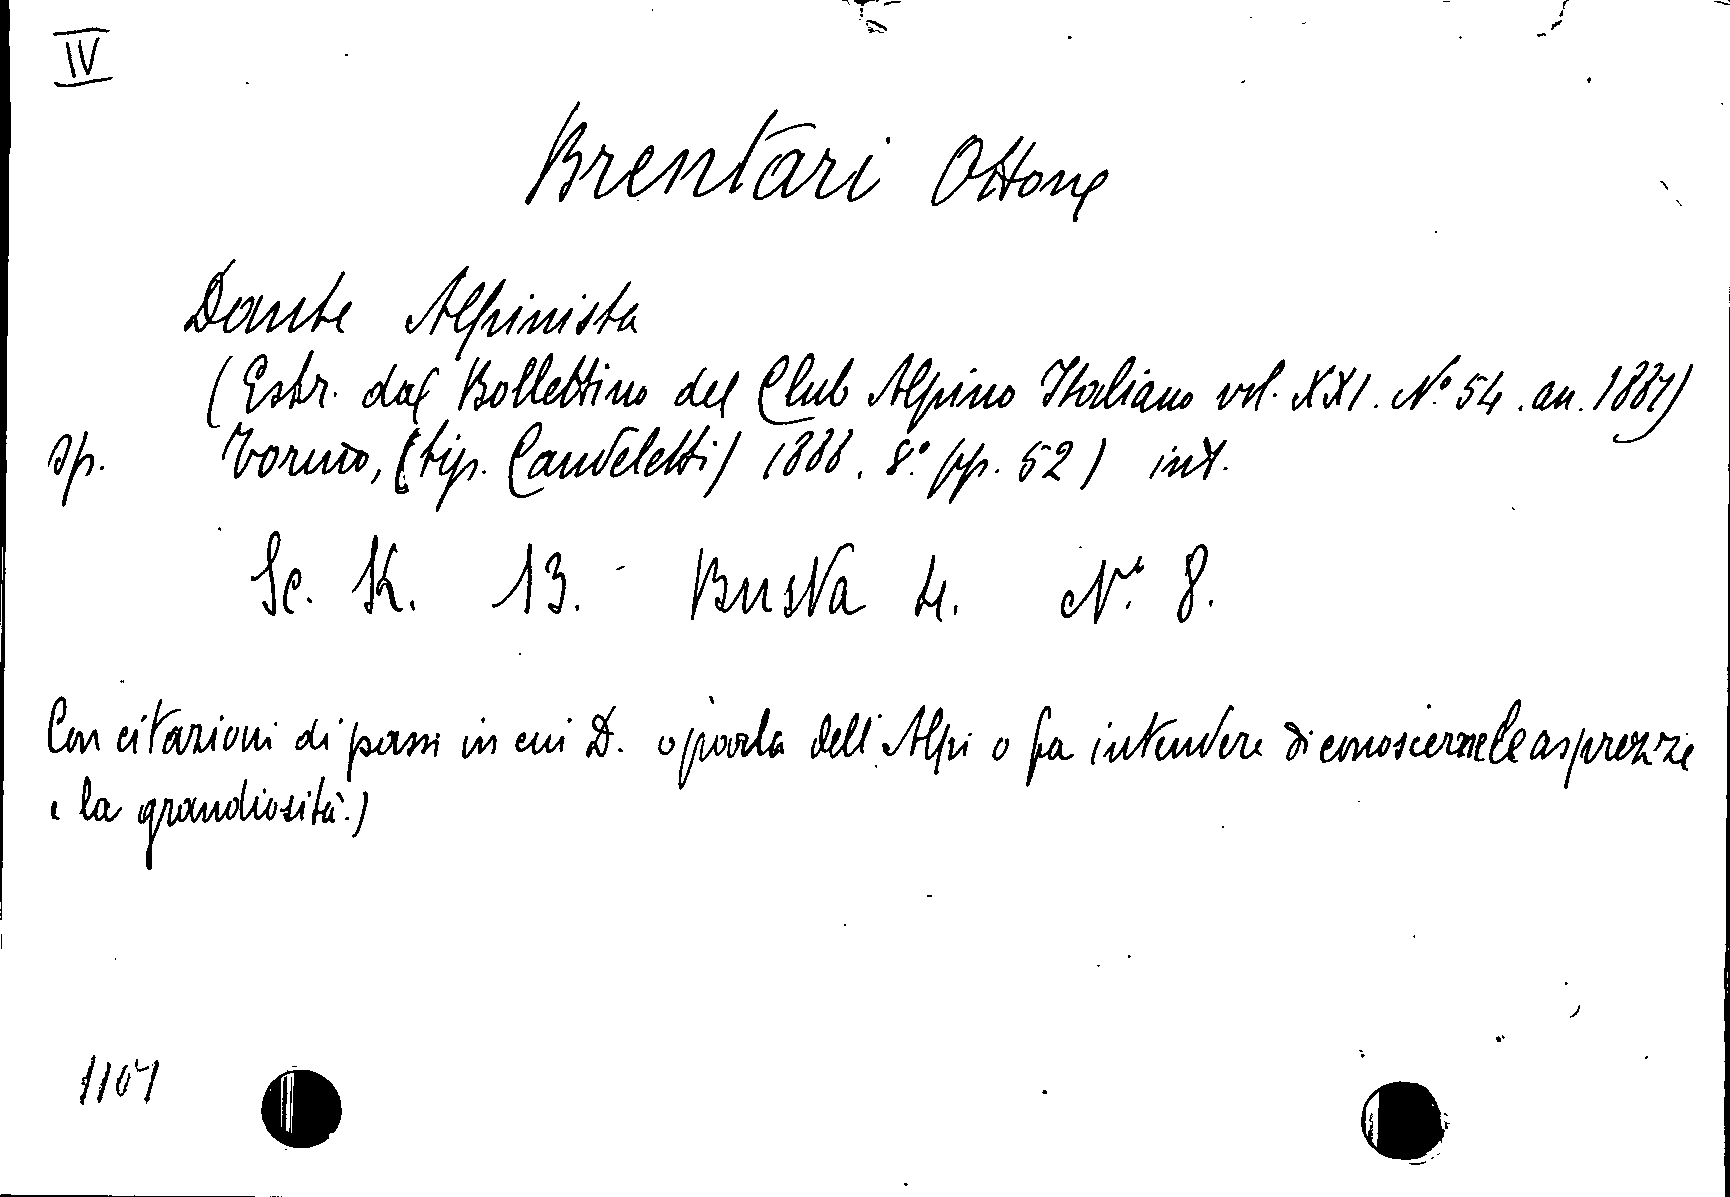 IV
Brentari Ottone
Dante Alpinista
(Estr. dal Bollettino del Club Alpino Italiano vol. XXI. N.° 54. an. 1887)
sp. Torino, (tip. Candeletti) 1888. 8.° pp. 52) int.
Sc. K. 13. Busta 4. N.° 8.
Con citazioni di passi in cui D. o parla dell'Alpi o fa intendere di conoscerne le asprezze
e la grandiosità.)
1107